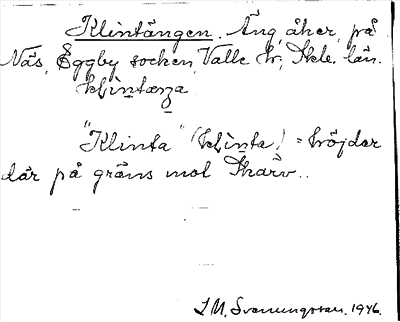 Klintängen. Äng, åker, på
Näs, Eggby socken, Valle hr; Skbg. län.
"Klinta" (          ) = höjder
där på gräns mot Skärv..
S. M. Svenungsson. 1946.